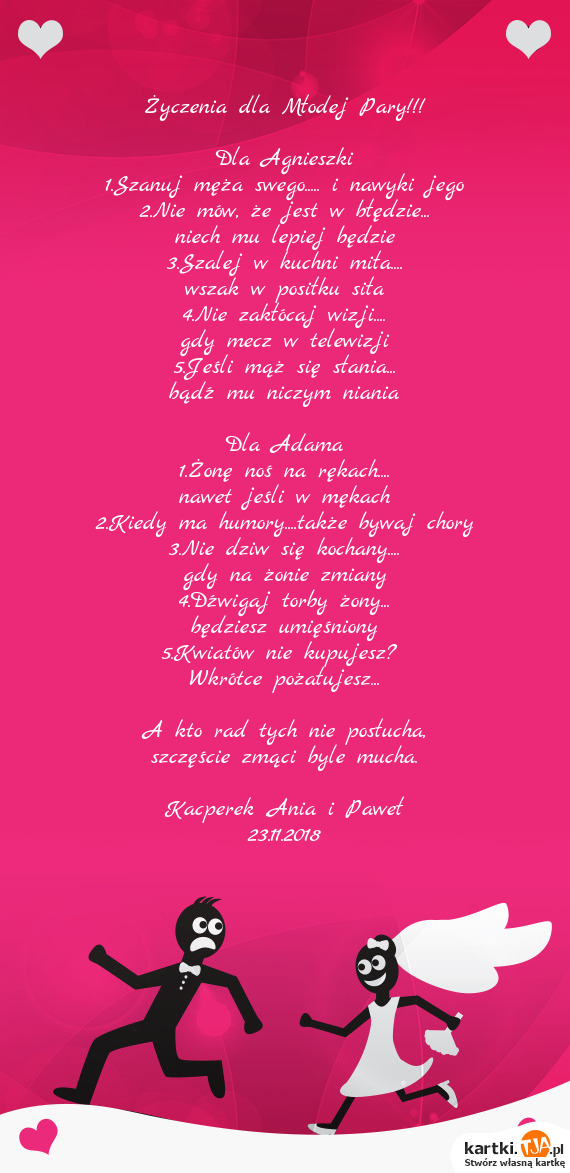 Życzenia dla Młodej Pary!!!
Dla Agnieszki
1.Szanuj męża swego..... i nawyki jego
2.Nie mów, że jest w błędzie...
niech mu lepiej będzie
3.Szalej w kuchni miła....
wszak w posiłku siła
4.Nie zakłócaj wizji....
gdy mecz w telewizji
5.Jeśli mąż się słania...
bądź mu niczym niania
Dla Adama
1.Żonę noś na rękach....
nawet jeśli w mękach
2.Kiedy ma humory....także bywaj chory
3.Nie dziw się kochany....
gdy na żonie zmiany
4.Dźwigaj torby żony...
będziesz umięśniony
5.Kwiatów nie kupujesz?
Wkrótce pożałujesz...
A kto rad tych nie posłucha,
szczęście zmąci byle mucha.
Kacperek Ania i Paweł
23.11.2018
kartki.TJA.pl
Stwórz własną kartkę